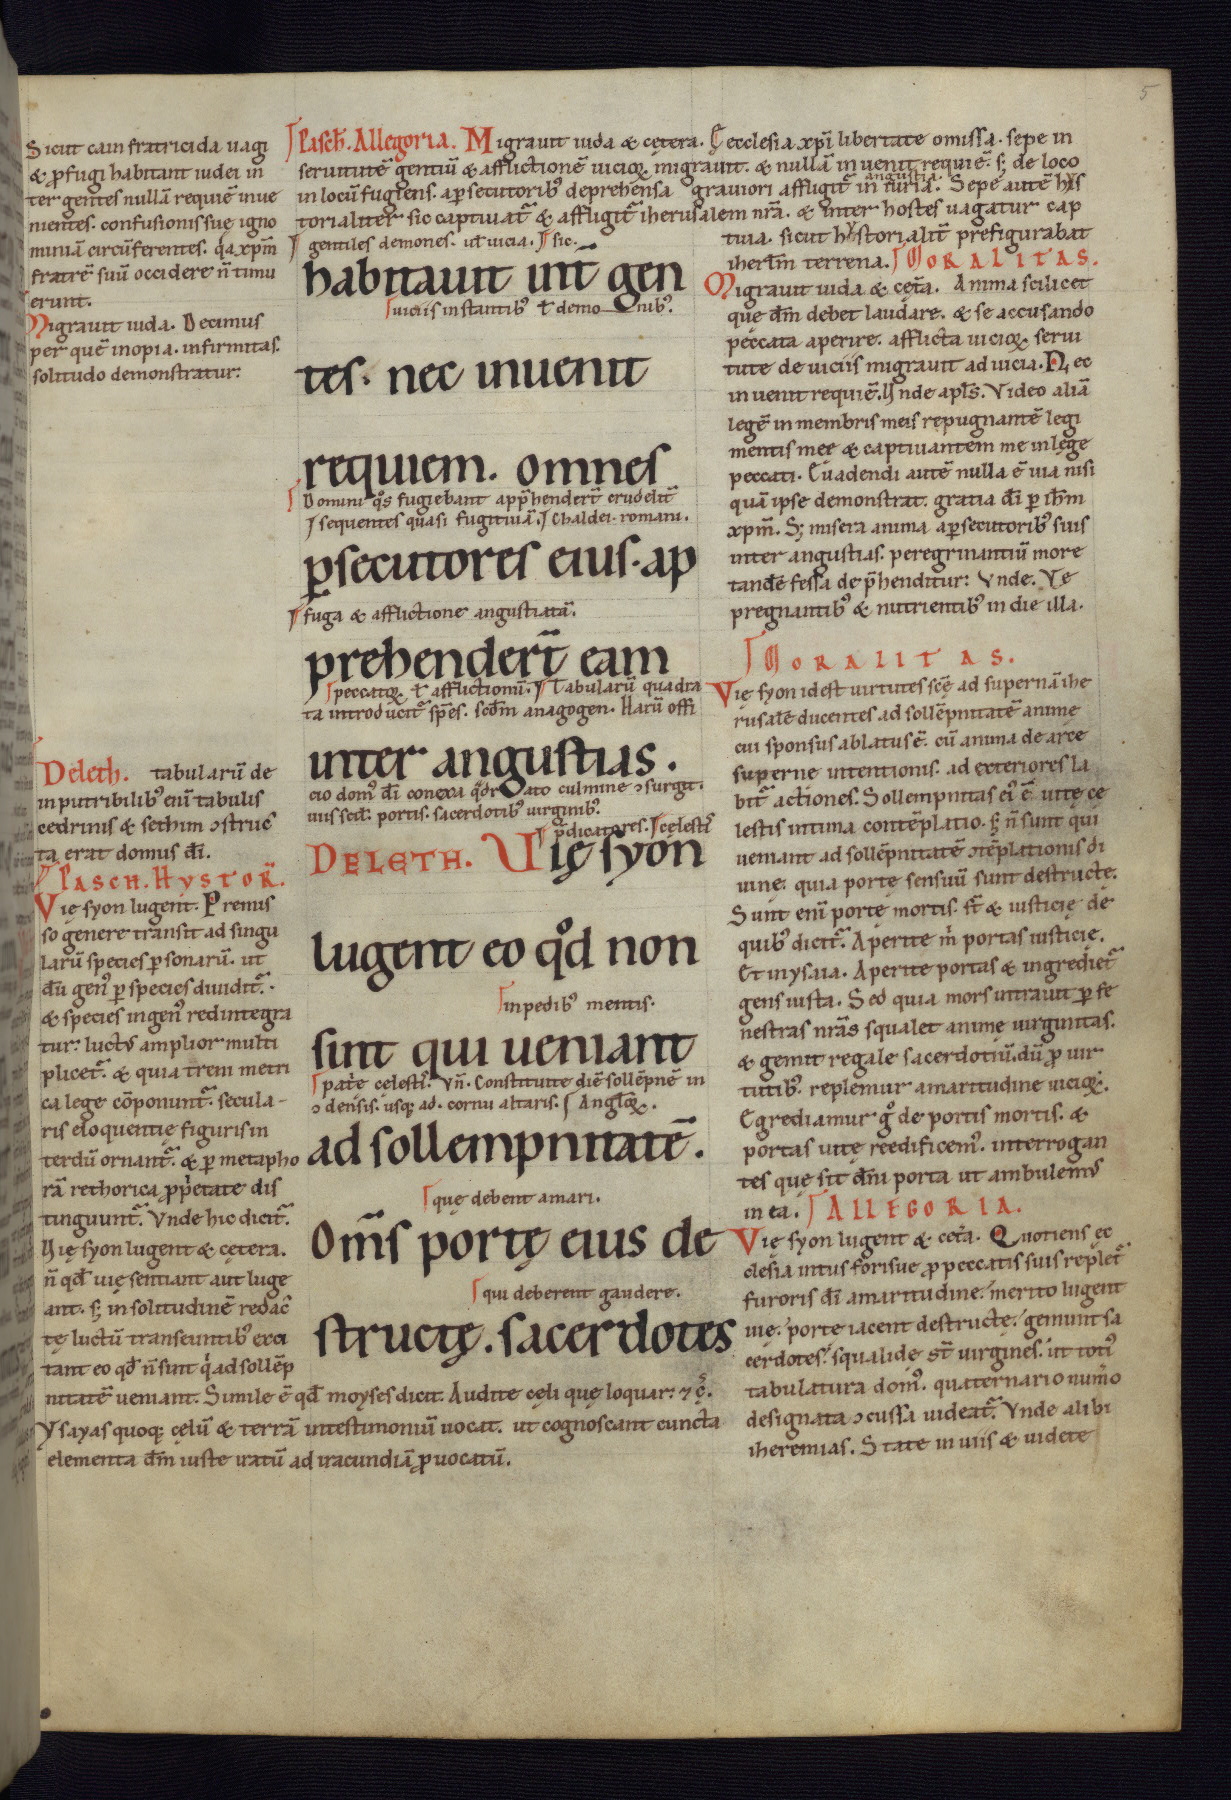 5
Sicut cain fratricida uagi
& ꝓfugi habitant iudei in
ter gentes nullā requiē inue
nientes. confusionis suę igno
miniam circūferentes. q̇a xpm̄
fratrē suū occidere n̄ timu
erunt.
Migrauit iuda. Decimus
per quē inopia. infirmitas.
solitudo demonstratur:
Pasch̄. Allegoria. Migrauit iuda & cetera. Ecclesia xp̄i libertate omissa. sepe in
seruitutē gentiū & afflictionē uicioꝝ migrauit. & nullā inuenit requiē. s; de loco
angustia.
in locū fugiens. a ꝑsecutorib; deprehensa grauiori affligit᷑ iniuria. Sepe autē hys
torialiter sic captiuat᷑ & affligit᷑ iherusalem nr̄a. & inter hostes uagatur cap
tiua. sicut hystorialit᷑ prefigurabat
iherl̄m terrena. MORALITAS.
gentiles demones. ut᷑ uicia. sic.
habitauit int᷑ gen
uiciis instantib; t᷑ demonib;.
tes. nec inuenit
requiem. omnes
Domini q̊s fugiebant appͥhendert᷑ crudelit᷑
sequentes quasi fugitiuā. Chaldei. romani.
ꝑsecutores eius. ap
fuga & afflictione angustiatā.
prehendert᷑ eam
peccatoꝝ t᷑ afflictionū. Tabularū quadra
ta introducit᷑ sp̄es. scd̄m anagogen. Harū offi
inter angustias.
cio dom; dī conexa q̇drato culmine ɔsurgit.
uiis scd̄. portis. sacerdotib; uirginib;.
p̄dicatores. celestis
DELETH. Vię syon
lugent eo qd̊ non
in pedib; mentis.
sint qui ueniant
patrię celestis. Vn̄. Constituite diē sollēpnē in
ɔdensis. usq; ad. cornu altaris. Angl̄oꝝ.
ad sollempnitatē.
que debent amari.
Om̄s portę eius de
qui deberent gaudere.
structę. sacerdotes
Migrauit iuda & cet̄a. Anima scilicet
que dm̄ debet laudare. & se accusando
peccata aperire. afflicta uicioꝝ serui
tute de uiciis migrauit ad uicia. Nec
inuenit requiē. Unde apl̄s. Video aliā
legē in membris meis repugnantē legi
mentis mee & captiuantem me in lege
peccati. Euadendi autē nulla ē uia nisi
quā ipse demonstrat. gratia dī p ih̄m
xpm̄. S; misera anima a ꝑsecutorib; suis
inter angustias. peregrinantiū more
tandē fessa dep̄henditur: Vnde. Ve
pregnantib; & nutrientib; in die illa.
MORALITAS.
Vię syon id est uirtutes scę̄ ad supernā ihe
rusalē ducentes ad sollēpnitatē anime
cui sponsus ablatus ē. cū anima de arce
superne intentionis. ad exteriores la
bit᷑ actiones. Sollempnitas ei; ē uitę ce
lestis intima contēplatio. s; n̄ sunt qui
ueniant ad sollēpnitatē ɔtēplationis di
uine. quia portę sensuū sunt destructę.
Sunt eni portę mortis. st̄ & iusticię de
quib; dicit᷑. Aperite m̄ portas iusticię.
Et in ysaia. Aperite portas & ingrediet᷑
gens iusta. Sed quia mors intrauit ꝑ fe
nestras nr̄as squalet anime uirginitas.
& gemit regale sacerdotiū. dū ꝓ uir
tutib; replemur amaritudine uicioꝝ.
Egrediamur g̊ de portis mortis. &
portas uitę reedificem;. interrogan
tes que sit dn̄i porta ut ambulem;
in ea. ALLEGORIA.
Vię syon lugent & cet̄a. Quotiens ec
clesia intus forisue ꝓ peccatis suis replet᷑
furoris dī amaritudine. merito lugent
uie. portę iacent destructę. gemunt sa
cerdotes. squalidę st̄ uirgines. ut toti;
tabulatura dom;. quaternario num̄o
designata ɔcussa uideat᷑. Vnde alibi
iheremias. State in uiis & uidete
Deleth. tabularū de
inputribilib; eni tabulis
cedrinis & sethim ɔstruc
ta erat domus dī.
PASCH. HYSTOR̄.
Vię syon lugent. Premis
so genere transit ad singu
larū species ꝑsonarū. ut
dū gen; ꝑ species diuidit᷑.
& species in gen; redintegra
tur: luct; amplior multi
plicet᷑. & quia trem metri
ca lege cōponunt᷑. secula-
ris eloquentię figuris in
terdū ornant᷑. & ꝑ metapho
rā rethorica ꝓpͥetate dis
tinguunt᷑. Vnde hic dicit᷑.
Vię syon lugent & cętera.
n̄ qd̄ uię sentiant aut luge
ant. s; in solitudinē redac̄
tę luctū transeuntib; exci
tant eo qd̄ n̄ sunt qͥ ad sollēp
nitatē ueniant. Simile ē qd̄ moyses dicit. Audite cęli quę loquar: ⁊ c̄.
Ysayas quoq; cęlū & terrā in testimoniū uocat. ut cognoscant cuncta
elementa dm̄ iuste iratū ad iracundiā ꝓuocatū.